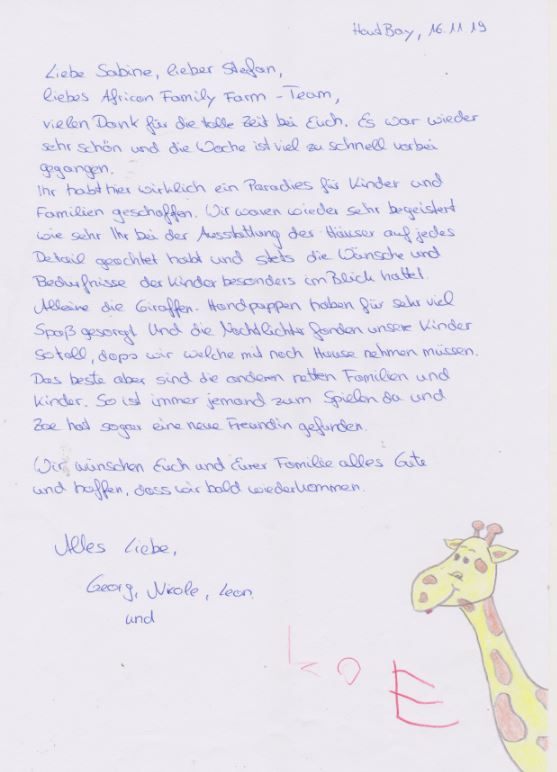 Hout Bay, 16.11.19
Liebe Sabine, lieber Stefan,
liebes African Family Farm-Team,
vielen Dank für die tolle Zeit bei Euch. Es war wieder
sehr schön und die Woche ist viel zu schnell vorbei
gegangen.
Ihr habt hier wirklich ein Paradies für Kinder und
Familien geschaffen. Wir waren wieder sehr begeistert
wie sehr Ihr bei der Ausstattung des Häuser auf jedes
Detail geachtet habt und stets die Wünsche und
Bedürfnisse der Kinder besonders im Blick hattet.
Alleine die Giraffen-Handpuppen haben für sehr viel
Spaß gesorgt. Und die Nachtlichter fanden unsere Kinder
so toll, dass wir welche mit nach Hause nehmen müssen.
Das beste aber sind die anderen netten Familien und
Kinder. So ist immer jemand zum Spielen da und
Zoe hat sogar eine neue Freundin gefunden.
Wir wünschen Euch und Eurer Familie alles Gute
und hoffen, dass wir bald wiederkommen.
Alles Liebe,
Georg, Nicole, Leon
und
ZOE